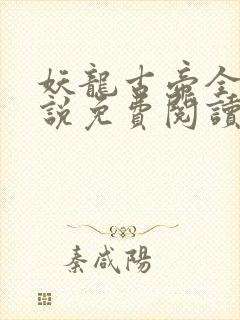 妖龍古帝全
說免費閱讀
秦咸陽